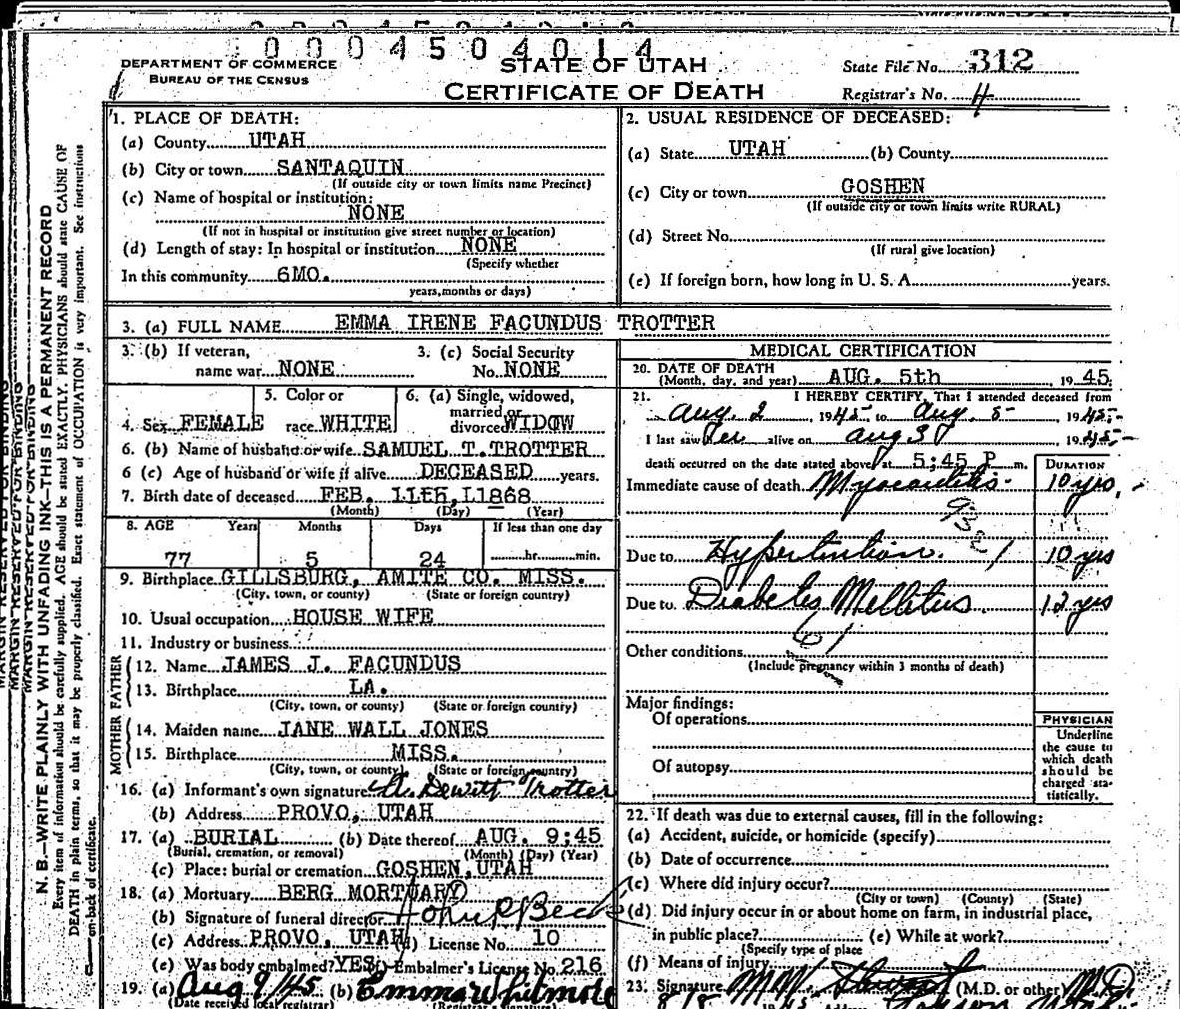 0 0 0 4 5 0 4 0 1 4
DEPARTMENT OF COMMERCE
BUREAU OF THE CENSUS
STATE OF UTAH
CERTIFICATE OF DEATH
State File No. 312
Registrar's No. 4
1. PLACE OF DEATH:
(a) County UTAH
(b) City or town SANTAQUIN
(If outside city or town limits name Precinct)
(c) Name of hospital or institution:
NONE
(If not in hospital or institution give street number or location)
(d) Length of stay: In hospital or institution NONE
(Specify whether
In this community 6MO.
years, months or days)
2. USUAL RESIDENCE OF DECEASED:
(a) State UTAH (b) County
(c) City or town GOSHEN
(If outside city or town limits write RURAL)
(d) Street No.
(If rural give location)
(e) If foreign born, how long in U. S. A. years.
3. (a) FULL NAME EMMA IRENE FACUNDUS TROTTER
3. (b) If veteran, name war NONE
3. (c) Social Security No. NONE
4. Sex FEMALE
5. Color or race WHITE
6. (a) Single, widowed, married or divorced WIDOW
6. (b) Name of husband or wife SAMUEL T. TROTTER
6 (c) Age of husband or wife if alive DECEASED years.
7. Birth date of deceased FEB. 11th, 1868
(Month) (Day) (Year)
8. AGE Years Months Days If less than one day
77 5 24 hr. min.
9. Birthplace GILLSBURG, AMITE CO. MISS.
(City, town, or county) (State or foreign country)
10. Usual occupation HOUSE WIFE
11. Industry or business
FATHER
12. Name JAMES J. FACUNDUS
13. Birthplace LA.
(City, town, or county) (State or foreign country)
MOTHER
14. Maiden name JANE WALL JONES
15. Birthplace MISS.
(City, town, or county) (State or foreign country)
16. (a) Informant's own signature Dewitt Trotter
(b) Address PROVO, UTAH
17. (a) BURIAL (b) Date thereof AUG. 9:45
(Burial, cremation, or removal) (Month) (Day) (Year)
(c) Place: burial or cremation GOSHEN, UTAH
18. (a) Mortuary BERG MORTUARY
(b) Signature of funeral director
(c) Address PROVO, UTAH (d) License No. 10
(e) Was body embalmed? YES (f) Embalmer's License No. 216
19. (a) Aug 9/45 (b) Emma Whitmore
(Date received local registrar) (Registrar's signature)
MEDICAL CERTIFICATION
20. DATE OF DEATH
(Month, day, and year) AUG. 5th, 19 45.
21. I HEREBY CERTIFY, That I attended deceased from
Aug. 2 1945 to Aug. 5 1945
I last saw her alive on Aug 3 1945
death occurred on the date stated above at 5:45 P m.
DURATION
Immediate cause of death Myocarditis 10 yrs.
932
Due to Hypertention. 10 yrs
Due to Diabetes Mellitus. 12 yrs
61
Other conditions
(Include pregnancy within 3 months of death)
Major findings:
Of operations
Of autopsy
PHYSICIAN
Underline
the cause to
which death
should be
charged sta-
tistically.
22. If death was due to external causes, fill in the following:
(a) Accident, suicide, or homicide (specify)
(b) Date of occurrence
(c) Where did injury occur?
(City or town) (County) (State)
(d) Did injury occur in or about home on farm, in industrial place,
in public place? (e) While at work?
(Specify type of place
(f) Means of injury
23. Signature (M.D. or other) M.D.
8/8 1945
MARGIN RESERVED FOR BINDING
N. B.—WRITE PLAINLY WITH UNFADING INK—THIS IS A PERMANENT RECORD
Every item of information should be carefully supplied. AGE should be stated EXACTLY. PHYSICIANS should state CAUSE OF
DEATH in plain terms, so that it may be properly classified. Exact statement of OCCUPATION is very important. See instructions
on back of certificate.